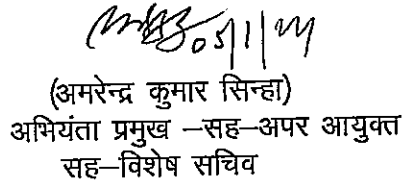 05/1/24
(अमरेन्द्र कुमार सिन्हा)
अभियंता प्रमुख –सह–अपर आयुक्त
सह–विशेष सचिव